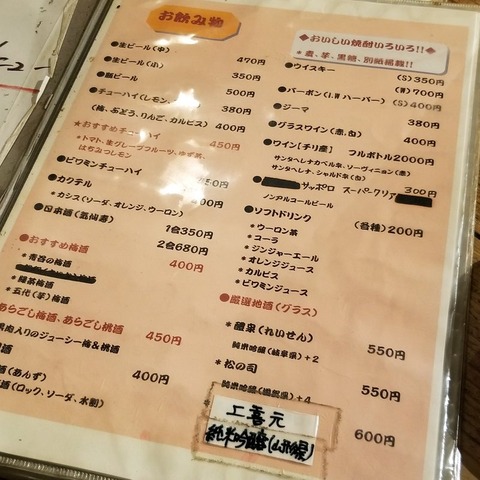 お飲み物
●生ビール(中) 470円
●生ビール(小) 350円
●瓶ビール 500円
●チューハイ(レモン、
(梅、ぶどう、りんご、カルピス) 380円
★おすすめチューハイ 450円
*トマト、生グレープフルーツ、ゆず茶、
はちみつレモン
●ビタミンチューハイ
●カクテル 400円
*カシス(ソーダ、オレンジ、ウーロン)
●日本酒 1合350円
2合680円
●おすすめ梅酒 400円
*青谷の梅酒
*緑茶梅酒
*五代(芋)梅酒
あらごし梅酒、あらごし桃酒 450円
果肉入りのジューシー梅&桃酒
酒(あんず) 400円
(ロック、ソーダ、水割)
◆おいしい焼酎いろいろ!!◆
*麦、芋、黒糖、別紙掲載!!
●ウイスキー (S)350円
(W)700円
●バーボン(I.W ハーパー) (S)400円
●ジーマ 380円
●グラスワイン(赤、白) 400円
●ワイン【チリ産】 フルボトル2000円
サンタヘレナカベル本、ソーヴィニョン(赤)
サンタヘレナ、シャルド本(白)
サッポロ スーパークリア 300円
ノンアルコールビール
●ソフトドリンク (各種)200円
*ウーロン茶
*コーラ
*ジンジャーエール
*オレンジジュース
*カルピス
*ビタミンジュース
●厳選地酒(グラス)
*醴泉(れいせん) 550円
純米吟醸(岐阜県)+2
*松の司 550円
純米吟醸(滋賀県)+4
上喜元 600円
純米吟醸(山形県)